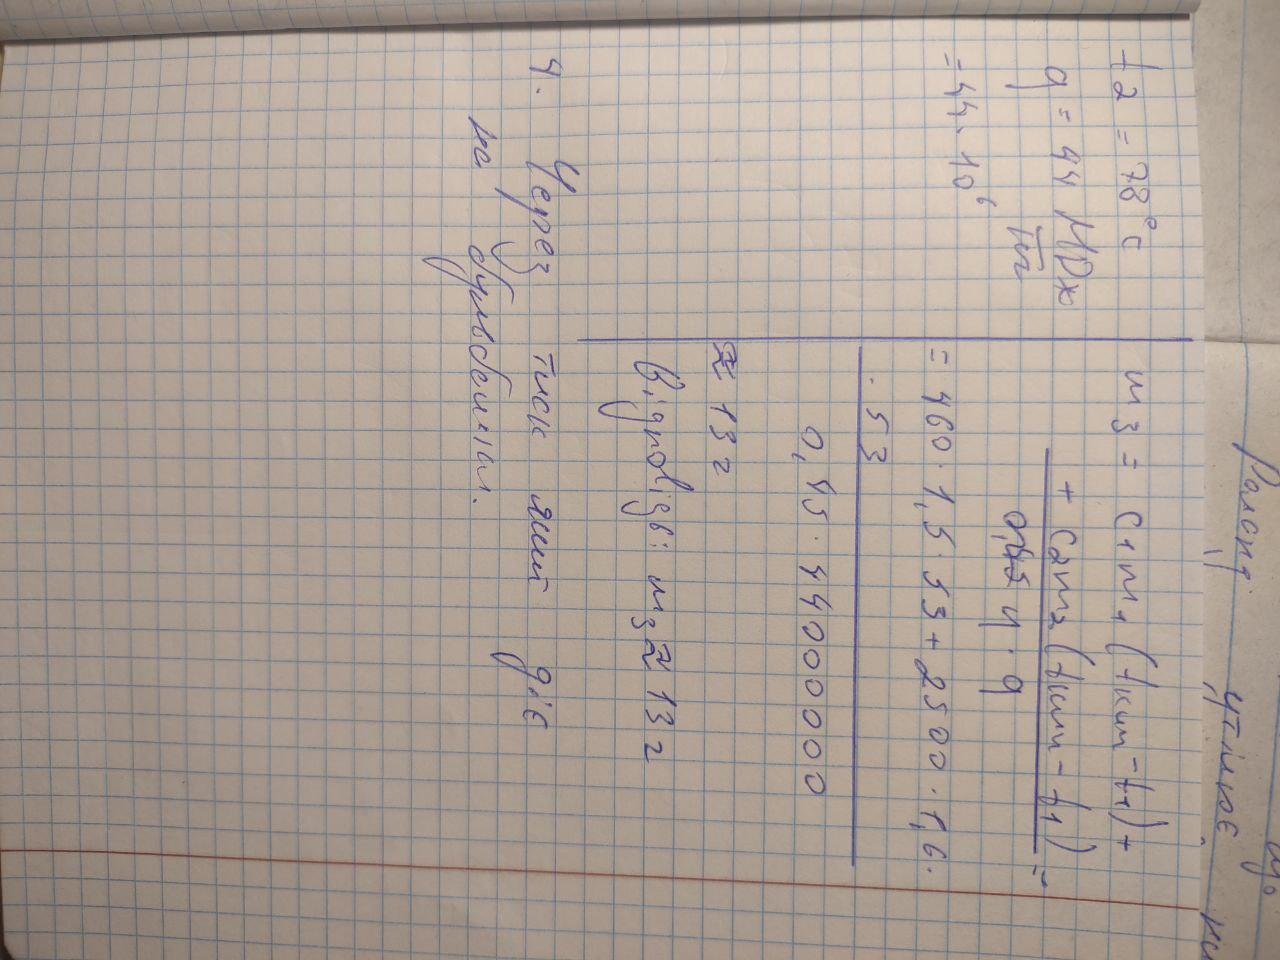 t2 = 78°C
q = 44 МДж
кг
= 44 · 10⁶
m3 = c1m1(tкип - t1) +
+ c2m2(tкип - t1) =
η · q
= 460 · 1,5 · 53 + 2500 · 1,6 ·
· 53
0,45 · 44000000
≈ 13 г
Відповідь: m3 ≈ 13 г
4. Через тиск який діє
на бульбашки.